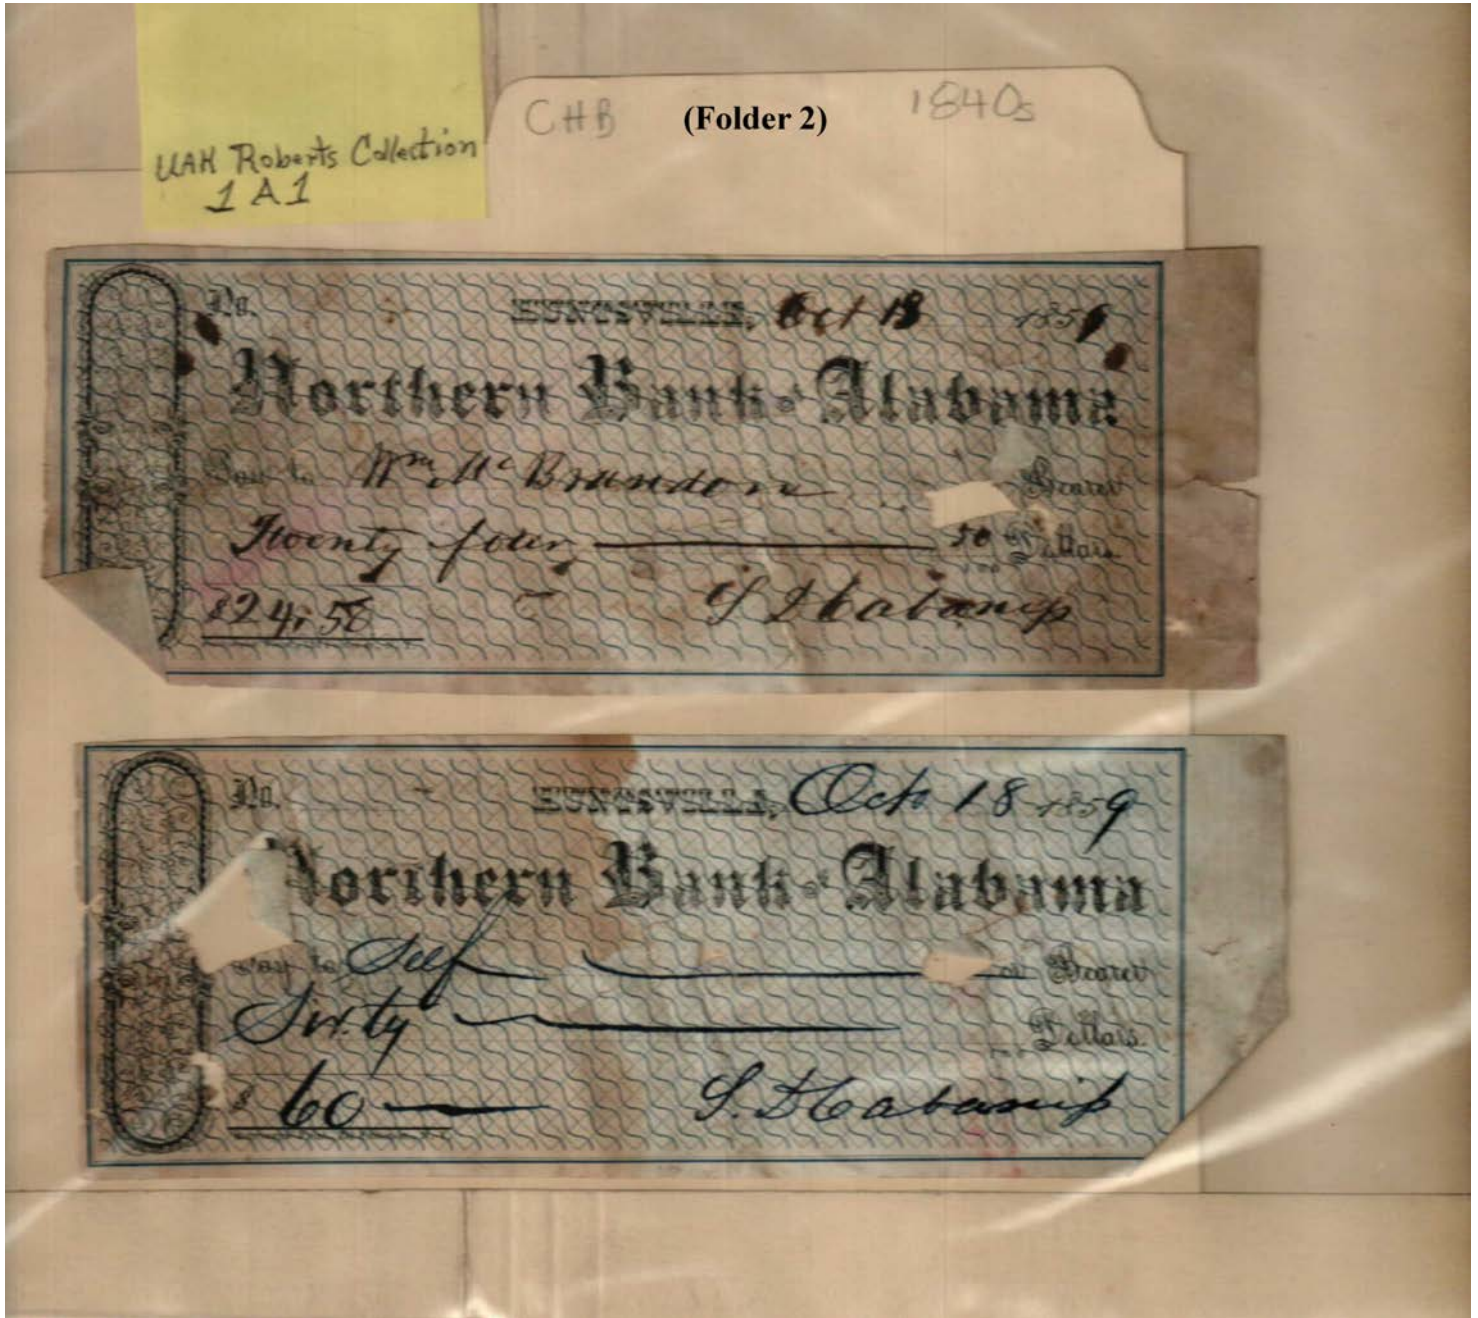 CHB (Folder 2) 1840s
UAH Roberts Collection
1 A 1
No. HUNTSVILLE, Oct 18 1859
Northern Bank of Alabama
Pay to Wm Mc Brandon Bearer
Twenty four 50 Dollars
100
$24.50 S D Cabaniss
No. HUNTSVILLE, Oct. 18 1859
Northern Bank of Alabama
Pay to Self or Bearer
Sixty Dollars.
100
$ 60 S. D Cabaniss